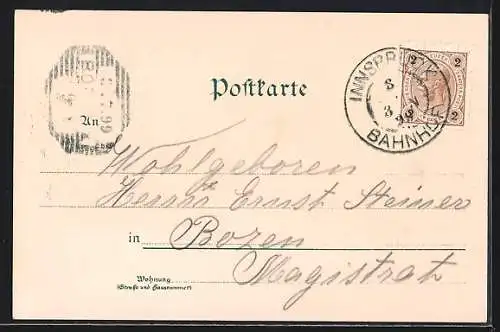 Postkarte
INNSBRUCK
BAHNHOF
8
3
99
2 2
2
BO
99
An
Wohlgeboren
Herrn Ernst Steiner
in Bozen
Magistrat
Wohnung
(Straße und Hausnummer)